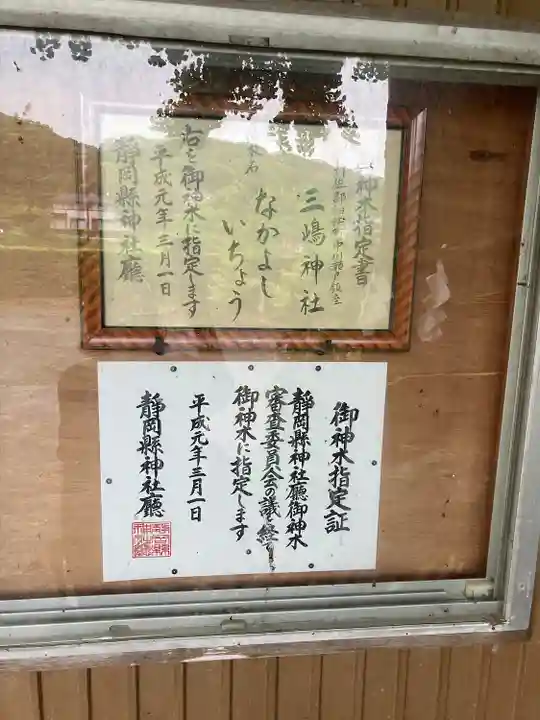 神木指定書
三嶋神社
なかよし
いちょう
右を御神木に指定します
平成元年三月一日
静岡縣神社廳
御神木指定証
静岡縣神社廳御神木
審査委員会の議を経て
御神木に指定します
平成元年三月一日
静岡縣神社廳